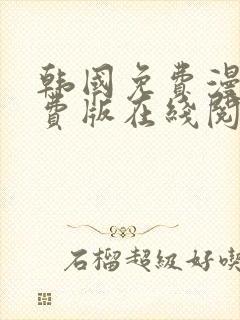 韩国免费漫
费版在线阅
石榴超级好喫